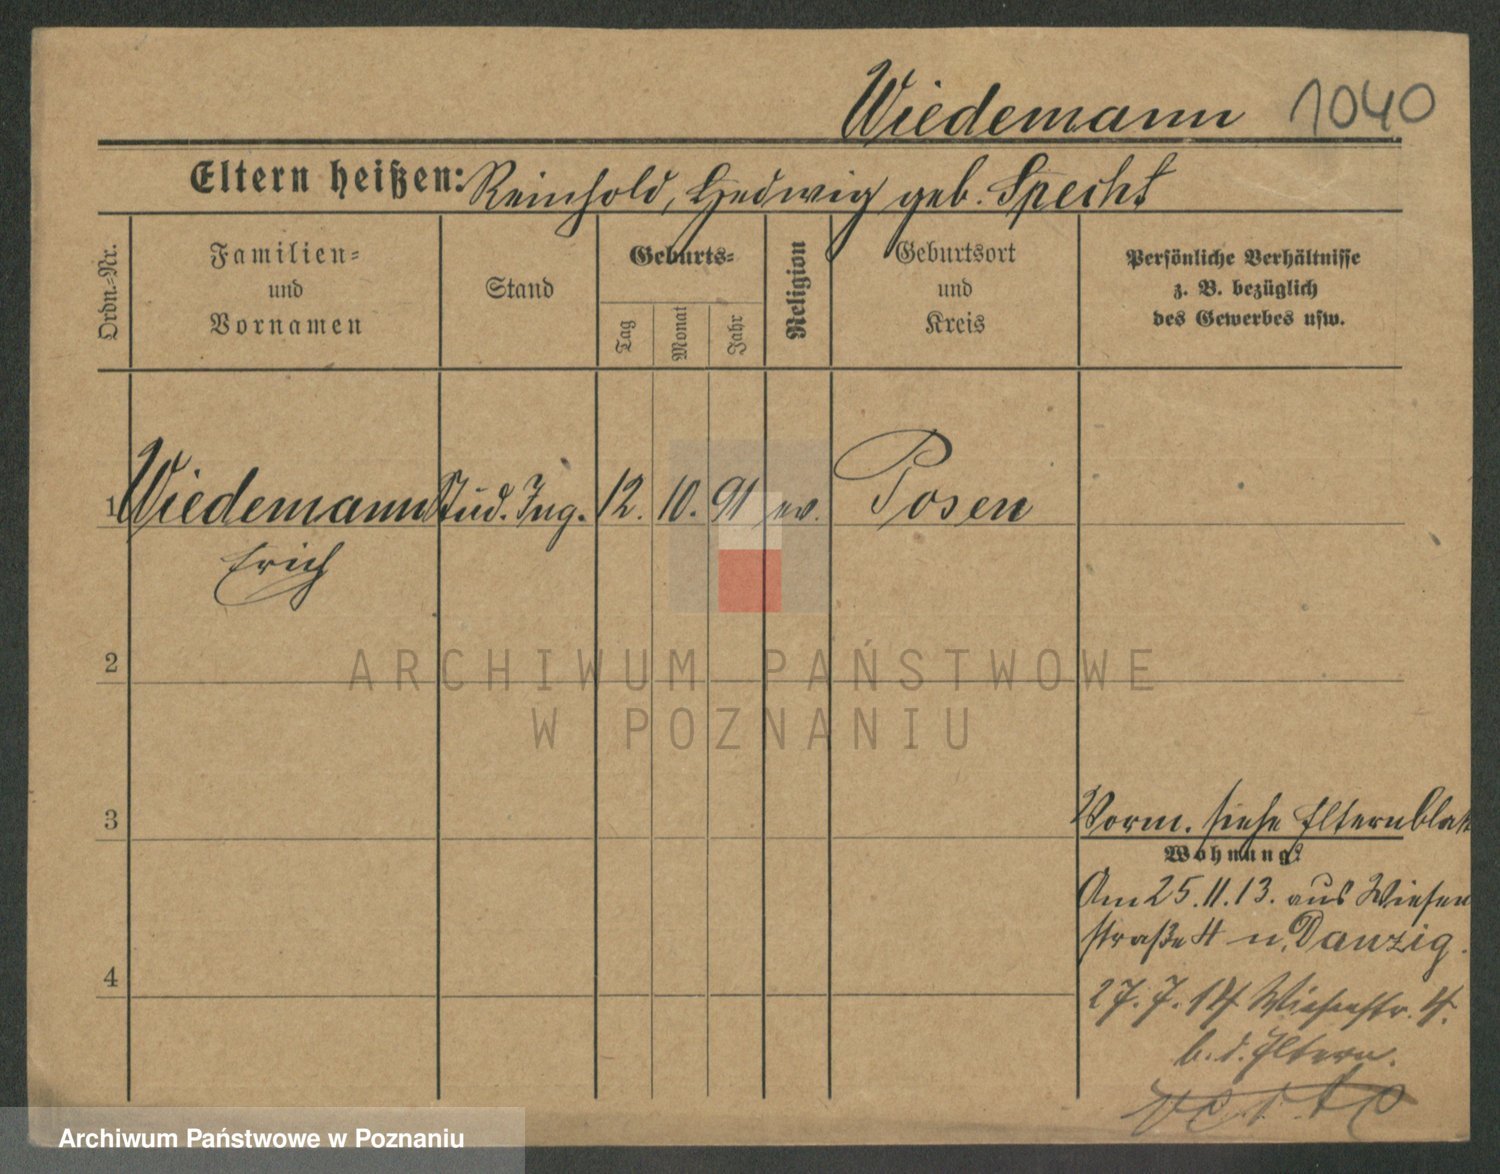 Wiedemann 1040
Eltern heißen: Reinhold, Hedwig geb. Specht
Ordn.-Nr.
Familien-
und
Vornamen
Stand
Geburts-
Tag
Monat
Jahr
Religion
Geburtsort
und
Kreis
Persönliche Verhältnisse
z. B. bezüglich
des Gewerbes usw.
1 Wiedemann Stud. Ing. 12. 10. 91 ev. Posen
Erich
2
ARCHIWUM PAŃSTWOWE
W POZNANIU
3
Vorm. siehe Elternblatt
Wohnung:
Am 25.11.13. aus Wiesen
straße 4 n. Danzig.
4
27.7.14 Wiesenstr. 4.
b. d. Eltern.
Archiwum Państwowe w Poznaniu